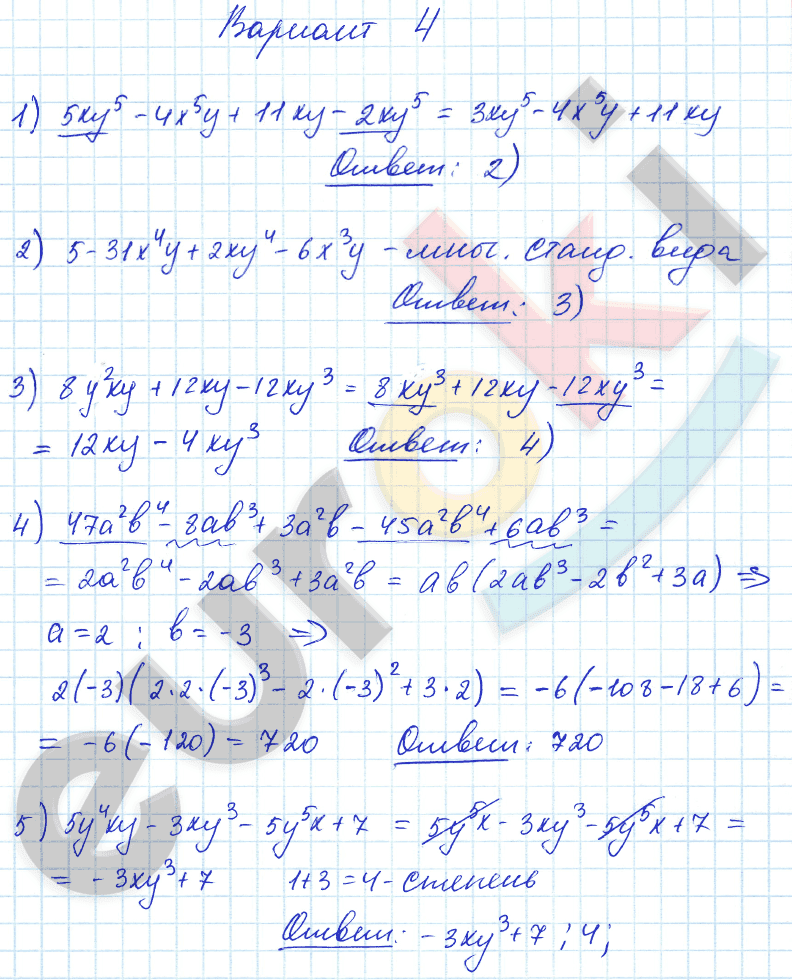 Вариант 4
1) 5xy⁵ - 4x⁵y + 11xy - 2xy⁵ = 3xy⁵ - 4x⁵y + 11xy
Ответ: 2)
2) 5 - 31x⁴y + 2xy⁴ - 6x³y - мног. станд. вида
Ответ: 3)
3) 8y²xy + 12xy - 12xy³ = 8xy³ + 12xy - 12xy³ =
= 12xy - 4xy³ Ответ: 4)
4) 47a²b⁴ - 8ab³ + 3a²b - 45a²b⁴ + 6ab³ =
= 2a²b⁴ - 2ab³ + 3a²b = ab(2ab³ - 2b² + 3a) ⇒
a = 2 ; b = -3 ⇒
2(-3)(2·2·(-3)³ - 2·(-3)² + 3·2) = -6(-108 - 18 + 6) =
= -6(-120) = 720 Ответ: 720
5) 5y⁴xy - 3xy³ - 5y⁵x + 7 = 5y⁵x - 3xy³ - 5y⁵x + 7 =
= -3xy³ + 7 1+3 = 4 - степень
Ответ: -3xy³ + 7 ; 4;
euroki